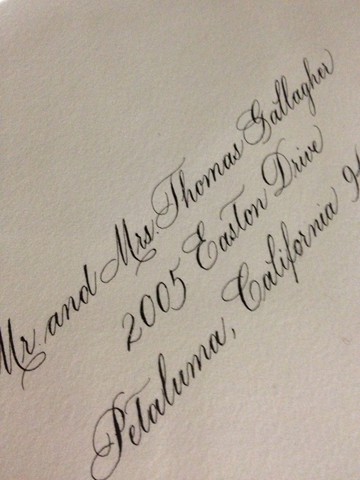 Mr. and Mrs. Thomas Gallagher
2005 Easton Drive
Petaluma, California